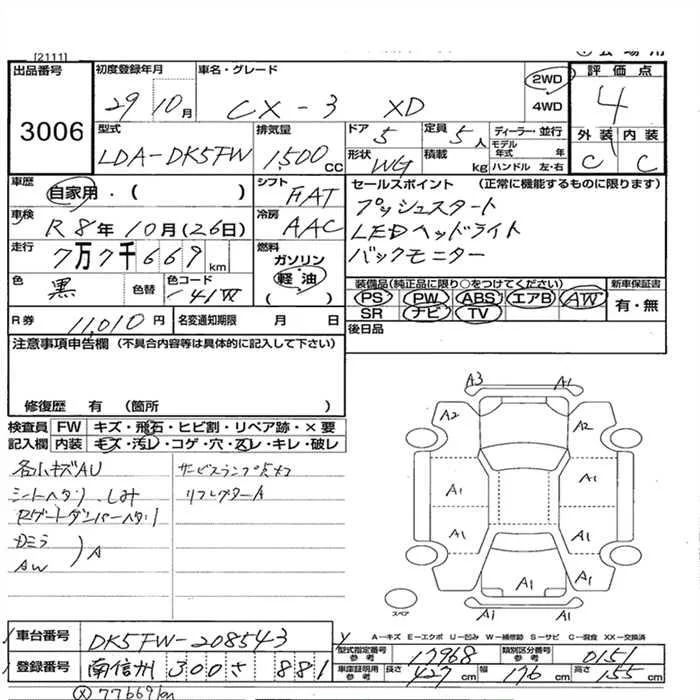 [2111]
出品番号
3006
初度登録年月
29年10月
車名・グレード
CX-3 XD
2WD
4WD
評価点
4
外装 内装
C C
型式
LDA-DK5FW
排気量
1,500cc
ドア
5
定員
5人
形状
WG
積載
kg
ディーラー・並行
モデル年式 年
ハンドル 左・右
車歴
自家用・( )
シフト
FAT
車検
R8年10月(26日)
冷房
AAC
走行
7万7千669km
燃料
ガソリン
軽油
( )
色
黒
色替
色コード
41W
セールスポイント (正常に機能するものに限ります)
プッシュスタート
LEDヘッドライト
バックモニター
装備品(純正品に限り○をつけてください)
PS PW ABS エアB AW
SR ナビ TV
新車保証書
有・無
R券
11,010円
名変通知期限 月 日
後日品
注意事項申告欄(不具合内容等は具体的に記入して下さい)
修復歴 有 (箇所 )
検査員記入欄
FW キズ・飛石・ヒビ割・リペア跡・×要
内装 キズ・汚レ・コゲ・穴・スレ・キレ・破レ
各小キズAU
シートヘタリ、しみ
Rゲートダンパーヘタリ
Dミラ
AW
A
サービスランプ点メツ
リフレクターA
A3 A1
A2 A2
A1 A1
A1 A1
A1 A1 A1
A1 A1
スペア
A—キズ E—エクボ U—凹み W—補修跡 S—サビ C—腐食 XX—交換済
車台番号
DK5FW-208543
登録番号
南信州 300 さ 881
型式指定番号 参考
17968
類別区分番号 参考
0151
車庫証明用 参考
長さ 427cm
幅 176cm
高さ 155cm
(×)77669km